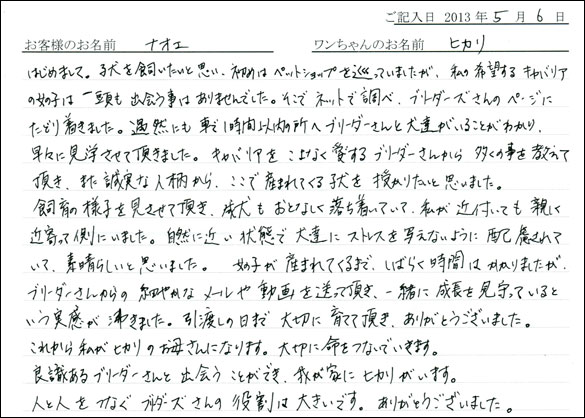 ご記入日 2013年5月6日
お客様のお名前 ナオエ ワンちゃんのお名前 ヒカリ
はじめまして。子犬を飼いたいと思い、初めはペットショップを巡っていましたが、私の希望するキャバリア
の女の子は一頭も出会う事はありませんでした。そこでネットで調べ、ブリーダーズさんのページに
たどり着きました。偶然にも車で1時間以内の所へブリーダーさんと犬達がいることがわかり、
早々に見学させて頂きました。キャバリアをこよなく愛するブリーダーさんから多くの事を教えて
頂き、また誠実な人柄から、ここで産まれてくる子犬を授かりたいと思いました。
飼育の様子を見させて頂き、成犬もおとなしく落ち着いていて、私が近付いても親しく
近寄って側にいました。自然に近い状態で犬達にストレスを与えないように配慮されて
いて、素晴らしいと思いました。 女の子が産まれてくるまで、しばらく時間はかかりましたが、
ブリーダーさんからの細やかなメールや動画を送って頂き、一緒に成長を見守っていると
いう実感が沸きました。引渡しの日まで大切に育てて頂き、ありがとうございました。
これから私がヒカリのお母さんになります。大切に命をつないでいきます。
良識あるブリーダーさんと出会うことができ、我が家にヒカリがいます。
人と人をつなぐブリーダーズさんの役割は大きいです。ありがとうございました。